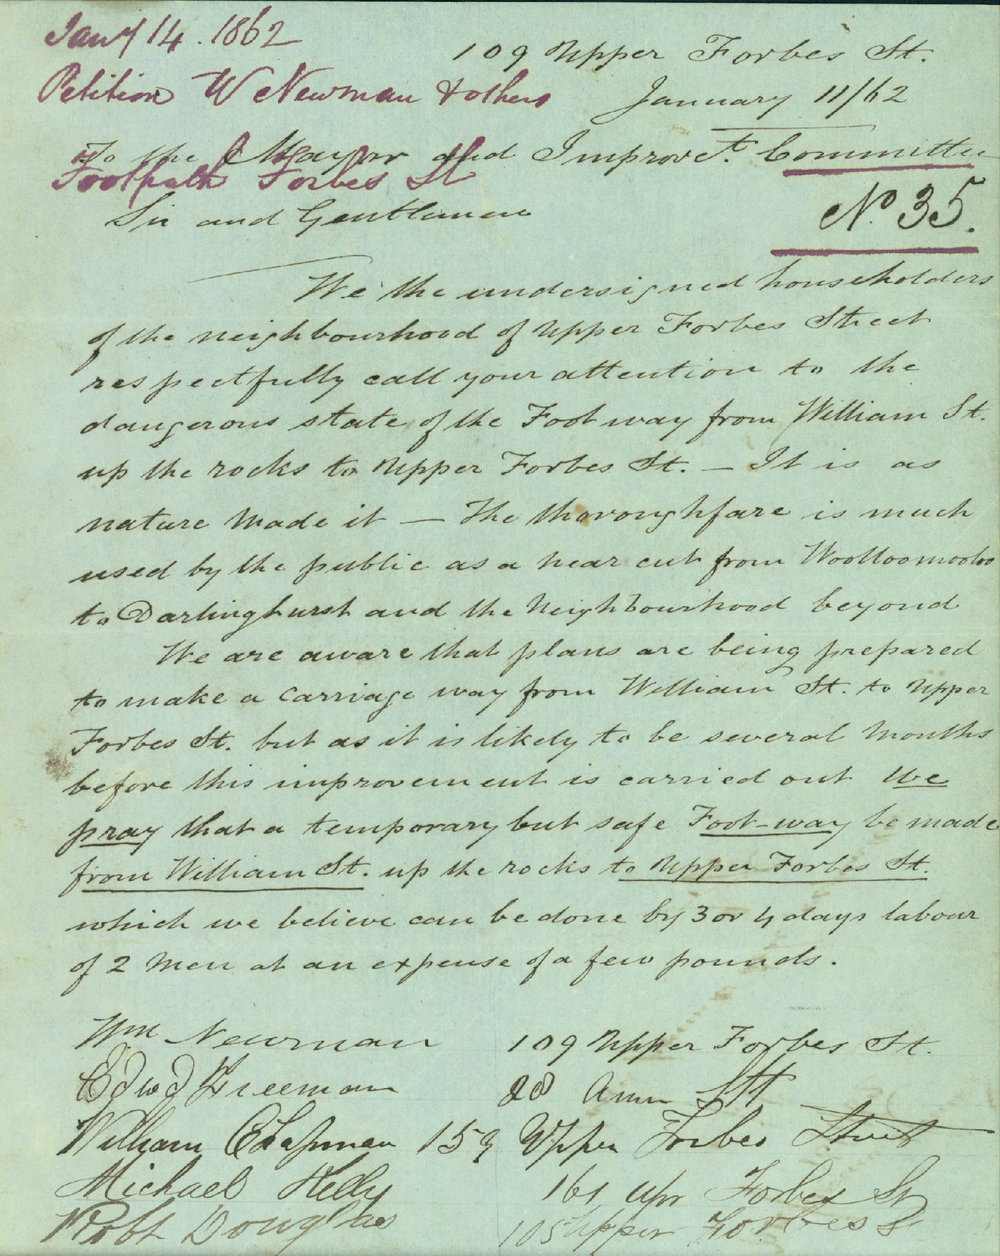 Jany 14. 1862
Petition W Newman & others
Footpath Forbes St
109 Upper Forbes St.
January 11/62
To the Mayor and Improvet. Committee
No 35.
Sir and Gentlemen
We the undersigned householders
of the neighbourhood of Upper Forbes Street
respectfully call your attention to the
dangerous state of the Foot way from William St.
up the rocks to Upper Forbes St. — It is as
nature made it — The thoroughfare is much
used by the public as a near cut from Woolloomooloo
to Darlinghurst and the Neighbourhood beyond
We are aware that plans are being prepared
to make a carriage way from William St. to Upper
Forbes St. but as it is likely to be several Months
before this improvement is carried out we
pray that a temporary but safe Foot-way be made
from William St. up the rocks to Upper Forbes St.
which we believe can be done by 3 or 4 days labour
of 2 Men at an expense of a few pounds.
Wm Newman 109 Upper Forbes St.
Edwd Freeman 28 Ann St
William Chapman 159 Upper Forbes Street
Michael Kelly 161 upr Forbes St
Robt Douglas 105 Upper Forbes S